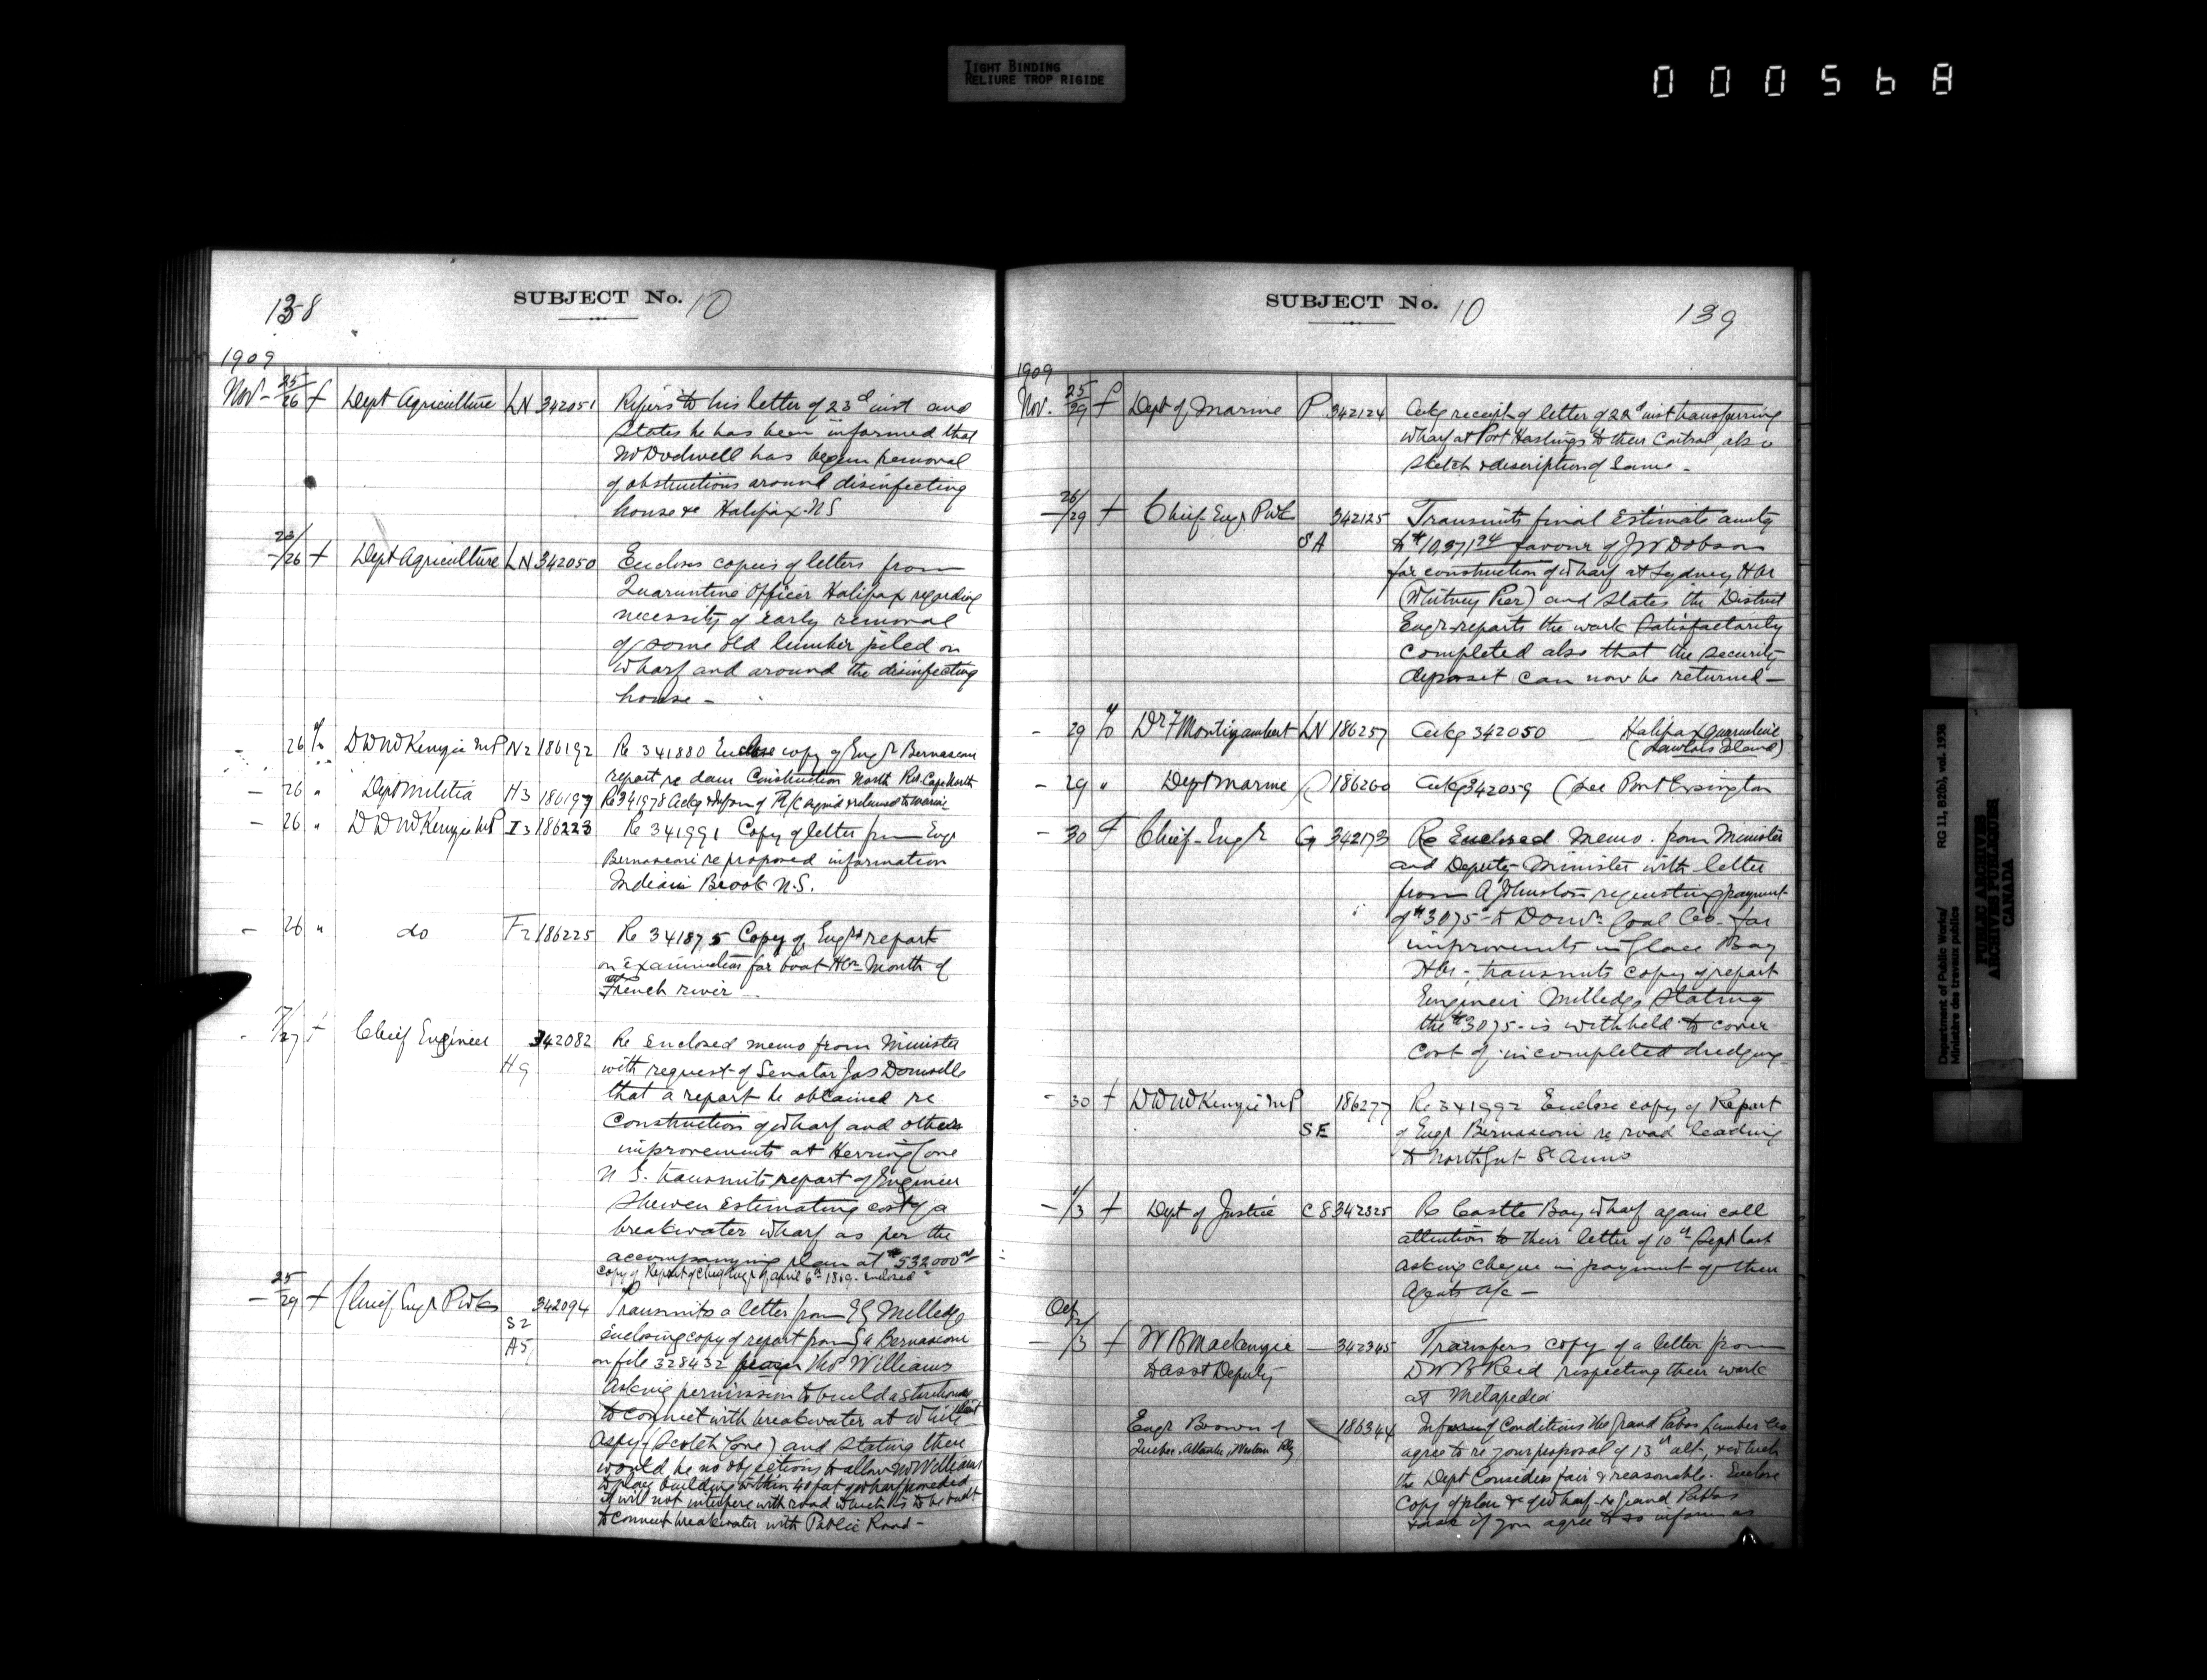 TIGHT BINDING
RELIURE TROP RIGIDE
000568
138
SUBJECT No. 10
1909
Nov - 25/26 f Dept Agriculture LN 342051 Refers to his letter of 23d inst and
states he has been informed that
Mr Dodwell has begun removal
of obstructions around disinfecting
house &c Halifax N S
23/26 f Dept Agriculture LN 342050 Encloses copies of letters from
Quarantine Officer Halifax regarding
necessity of early removal
of some old lumber piled on
wharf and around the disinfecting
house -
- 26 to D D McKenzie MP N2 186192 Re 341880 Enclose copy of Engr Bernasconi
report re dam Construction North
- 26 " Dept Militia H3 186197 Re 341978
- 26 " D D McKenzie MP I3 186223 Re 341991 Copy of letter from Engr
Bernasconi re proposed information
Indian Brook N.S.
- 26 " do F2 186225 Re 341875 Copy of Engrs report
on examination for boat Hbr Mouth of
French river -
- /27 f Chief Engineer 342082 Re enclosed memo from Minister
H9 with request of Senator Jas Domville
that a report be obtained re
Construction of wharf and others
improvements at Herring Cove
N S. transmits report of Engineer
Shewen estimating cost of a
breakwater wharf as per the
accompanying plan at $532000
copy of Report of Chief Engr of April 6th 1869. enclosed
- 25/29 f Chief Engr P Wks 342094 Transmits a letter from Milledge
S2 enclosing copy of report from Bernasconi
A5 on file 328432 Thos Williams
Asking permission to build a storehouse
to connect with breakwater at White Point
Aspy (Scotch Cove) and stating there
would be no objections to allow Mr Williams
to place building within 40 feet of wharf provided
it will not interfere with road which is to be built
to connect breakwater with Public Road -
SUBJECT No. 10
139
1909
Nov. 25/29 f Dept of Marine P 342124 Ackg receipt of letter of inst transferring
wharf at Port Hastings to their Control also
sketch & description of same -
- 26/29 f Chief Engr P Wks 342125 Transmits final Estimate amtg
SA to favour of J W Dobson
for construction of wharf at Sydney Hbr
(Whitney Pier) and states the District
Engr reports the work satisfactorily
completed also that the security
deposit can now be returned -
- 29 to Dr F Montizambert LN 186257 Ackg 342050 - Halifax quarantine
(Lawlors Island)
- 29 " Dept Marine 186260 Ackg 342059 (see Port
- 30 f Chief Engr G 342173 Re Enclosed memo. from Minister
and Deputy Minister with letter
from A Johnston requesting payment
of $3075 - to Domn Coal Co. for
improvements in Glace Bay
Hbr - transmits copy of report
Engineer Milledge stating
the $3075 - is withheld to cover
cost of incompleted dredging
- 30 f D D McKenzie MP 186277 Re 341992 Enclose copy of Report
SE of Engr Bernasconi re road leading
to North Gut St Anns
- 1/3 f Dept of Justice C8 342325 Re Castle Bay wharf again call
attention to their letter of 10th Sept last
asking cheque in payment of their
Agents a/c -
Oct
- 2/3 f W B Mackenzie - 342345 Transfers copy of a letter from
to Asst Deputy D W B Reid respecting their work
at Metapedia
Engr Brown of 186344 Conditions the Grand Pabos Lumber Co
Quebec, Atlantic, Western Rly agree to re your proposal of 13th ult, & which
the Dept Considers fair & reasonable. Enclose
Copy of plan &c of wharf - Grand Pabos
& ask if you agree to so inform us
Department of Public Works/
Ministère des travaux publics
RG 11, B2(b), vol. 1938
PUBLIC ARCHIVES
ARCHIVES PUBLIQUES
CANADA